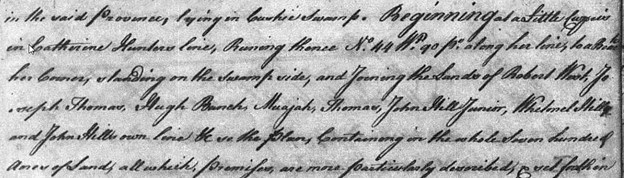 in the said Province, lying in Cashie Swamp. Beginning at a Little Cyprus
in Catherine Hunters line, Runing thence No. 44 Wt. 90 po. along her line, to a
her Corner, standing on the Swamp side, and Joining the Lands of Robert West, Jo
seph Thomas, Hugh Banch, Muajah, Thomas, John Hill Junior, Whitmel Hill,
and John Hills own line &c se the Plan, Containing in the whole Seven hundred
Acres of Land, all which, Premises, are more Particularly described, & set forth in